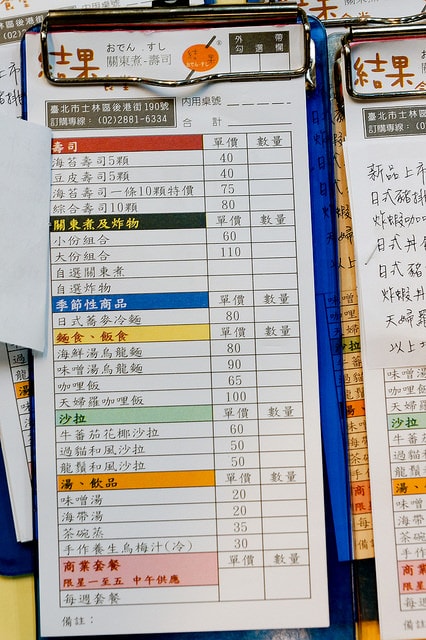 結果
おでん．すし
關東煮-壽司
紅葉
おでん．すし
外帶
勾選欄
臺北市士林區後港街190號
訂購專線： (02)2881-6334
內用桌號
合計
壽司 單價 數量
海苔壽司5顆 40
豆皮壽司5顆 40
海苔壽司一條10顆特價 75
綜合壽司10顆 80
關東煮及炸物 單價 數量
小份組合 60
大份組合 110
自選關東煮
自選炸物
季節性商品 單價 數量
日式蕎麥冷麵 80
麵食、飯食 單價 數量
海鮮湯烏龍麵 80
味噌湯烏龍麵 90
咖哩飯 65
天婦羅咖哩飯 100
沙拉 單價 數量
牛蕃茄花椰沙拉 60
過貓和風沙拉 50
龍鬚和風沙拉 50
湯、飲品 單價 數量
味噌湯 20
海帶湯 20
茶碗蒸 35
手作養生烏梅汁(冷) 30
商業套餐 單價 數量
限星一至五 中午供應
每週套餐
備註：
結果
臺北市士林區
訂購專線： (02)
新品上市
日式豬排
炸蝦咖
日式丼
日式豬
炸蝦丼
天婦羅
以上
味噌
咖哩飯
天婦羅
沙拉
牛蕃茄
過貓和
龍鬚和
湯、
味噌湯
海帶湯
茶碗蒸
手作養
商業
限星一
每週套
備註